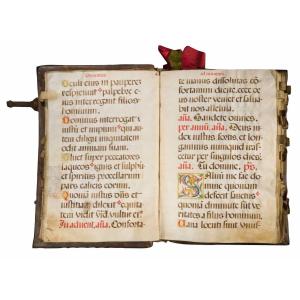 Oculi eius in pauperes
respiciunt palpebre e
ius interrogant filios
hominum.
Dominus interrogat i
ustum et impium qui au
tem diligit iniquitatem
odit animam suam.
Pluet super peccatores
laqueos ignis et sulphu
et spiritus procellarum
pars calicis eorum.
Quoniã iustus dñs et
iustitias dilexit equita
tem vidit vultus ei
In advent. aña. Conforta
te manus dissolutas co
fortamini dicite ecce de
us noster veniet et salua
bit nos alleluia.
aña. Gaudete omnes.
per annũ. aña. Deus in
dex iustus fortis et lon
ganimus nunquid iras
cetur per singulos dies.
aña. Tu domine. ps.
Salvũ me fac do
mine quoniam
defecit sanctus
quoniã diminute sũt ve
ritates a filiis hominum.
Uana locuti sunt unus